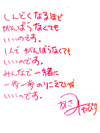 しんどくなるほど
がんばらなくても
いいのです。
1人でがんばらなくても
いいのです。
みんなで一緒に
一歩一歩のりこえていけば
いいのです。